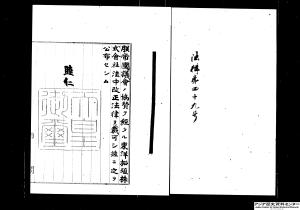 法律第四十九号
朕帝国議会ノ協賛ヲ経タル東洋拓殖株
式会社法中改正法律ヲ裁可シ茲ニ之ヲ
公布セシム
睦仁
天皇御璽
アジア歴史資料センター